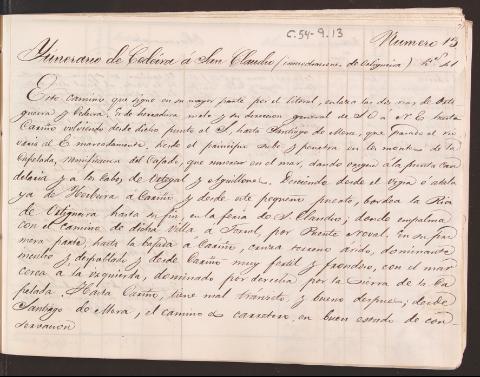 C.54-9.13
Numero 13
Ytinerario de Cedeira á San Claudio (inmediaciones de Ortigueira)
Este camino que sigue en su mayor parte por el litoral, enlaza las dos rias de Orti
gueira y Cedeira. Es de herradura, malo y su direccion general de S.O. a N.E. hasta
Cariño volviendo desde dicho punto al S. hasta Santiago de Mera, que
al E. marcadamente. Desde el principio sube y penetra en los montes de la
Capelada, ramificacion del que muere en el mar, dando origen á la punta Can
delaria y a los Cabos de Ortegal y Aguillones. Desciende desde el Vigia ó atala
ya de Herbeira a Cariño y desde este pequeño puerto, bordea la Ria
de Ortigueira hasta su fin, en la feria de S. Claudio; donde empalma
con el camino de dicha villa a Ferrol, por Puente Neval. En su pri
mera parte, hasta la bajada a Cariño, cruza terreno árido, dominante
inculto y despoblado y desde Cariño muy fertil y frondoso, con el mar
cerca a la izquierda, dominado por derecha por la sierra de la Ca
pelada. Hasta Cariño, tiene mal transito, y bueno despues; desde
Santiago de Mera, el camino es carretero en buen estado de con-
servacion